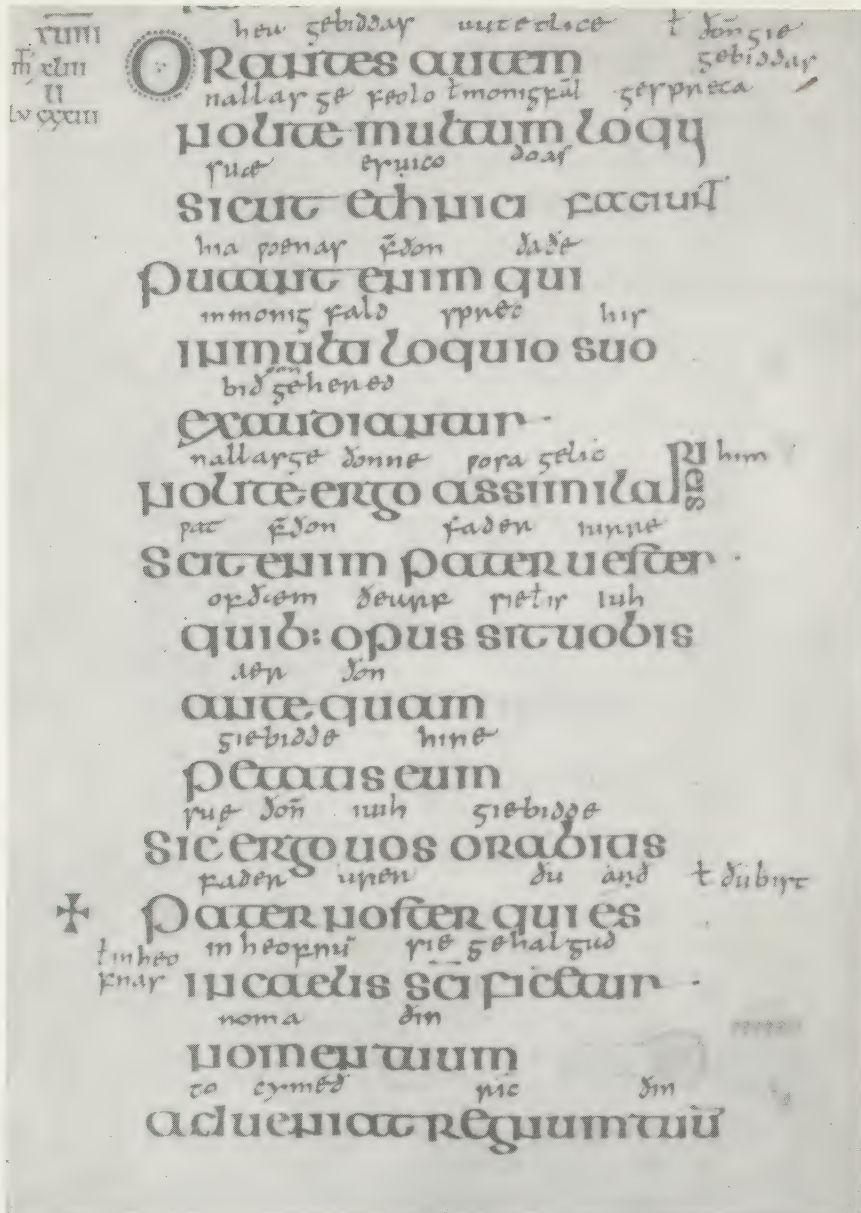 xuiiii heu gebiddas uutetlice ł ðoñ gie
m̄ xliii ORantes autem gebiddas
II nallas ge feolo ł monigfal gespreca
lv cxxiii nolite multum loqui
suæ esuico doas
sicut ethnici faciunt
hia woenas f̄ðon ðaðe
Putant enim qui
in monig fald sprec his
in multi loquio suo
bið gehered
exaudiantur ·
nallas ge ðonne wosa gelic him
nolite ergo assimilari eis
wat f̄ðon fader iurre
Scit enim pater uester ·
of ðæm ðeurf sie ł is iuh
quib: opus sit uobis
aer ðon
ante quam
giebidde hine
petatis eum
sue ðoñ iuih giebidde
Sic ergo uos orabitis
fader uren ðu arð ł ðu bist
Pater noster qui es
ł in heofnas in heofnū sie gehalgud
in caelis scificetur ·
noma ðin
nomen tuum
to cymeð ric ðin
adueniat regnum tuū